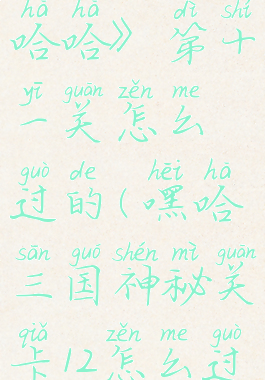 hā hā dì shí
哈哈》 第十
yī guān zěn me
一关怎么
guò de hēi hā
过的(嘿哈
sān guō shén mì guān
三国神秘关
qiǎ zěn me guò
卡12怎么过